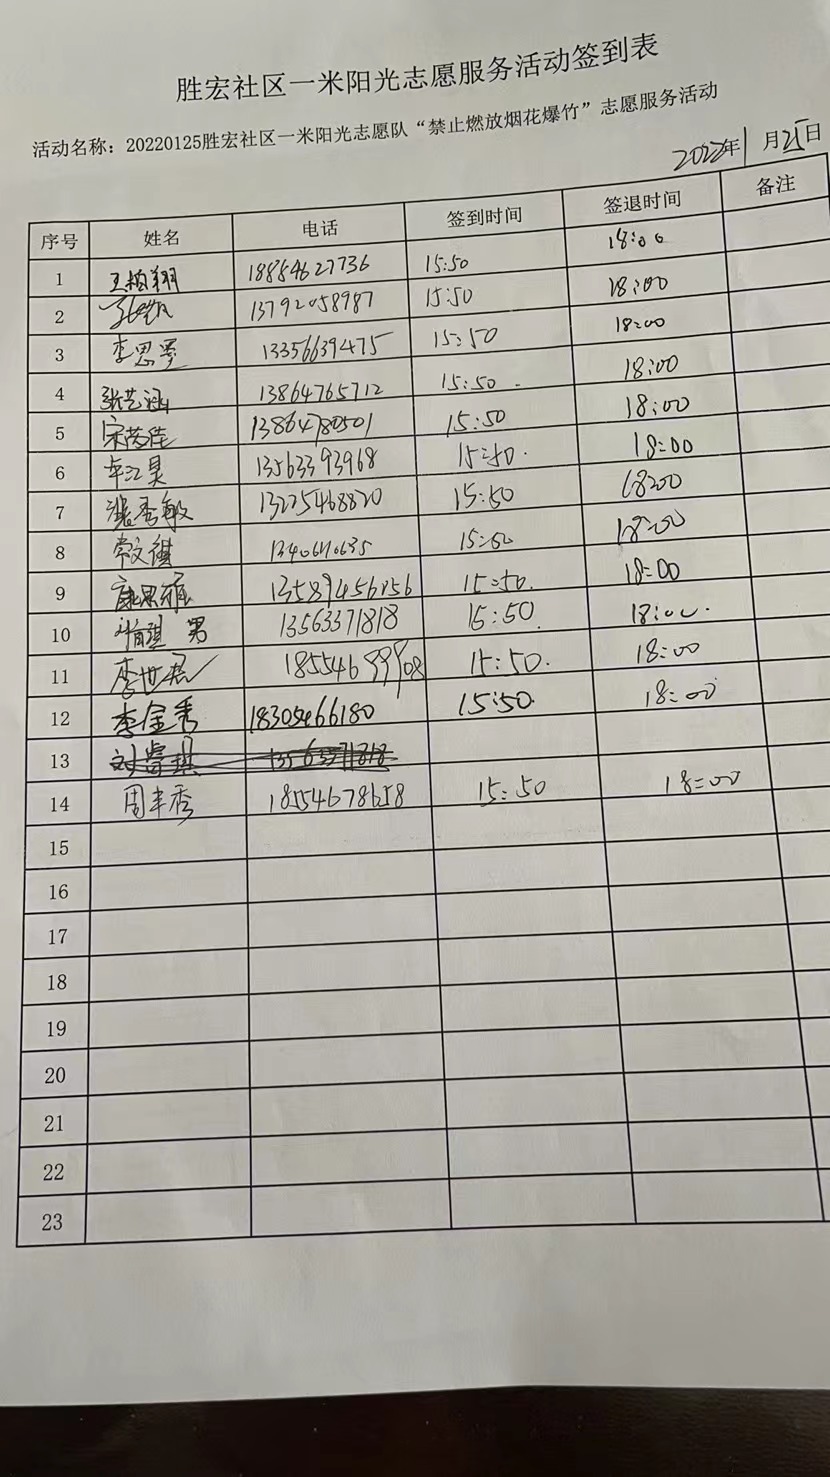 胜宏社区一米阳光志愿服务活动签到表
活动名称：20220125胜宏社区一米阳光志愿队“禁止燃放烟花爆竹”志愿服务活动
2022年1月25日
序号 姓名 电话 签到时间 签退时间 备注
1 王柏翔 18854627736 15:50 18:00
2 13792058987 15:50 18:00
3 李思墨 13356639475 15:50 18:00
4 张艺涵 13864765712 15:50 18:00
5 宋茂佳 13864780501 15:50 18:00
6 车江昊 13563393968 15:50 18:00
7 张秀敏 13225468820 15:50 18:00
8 常文祺 15:50 18:00
9 13589456156 15:50 18:00
10 男 13563371818 15:50 18:00
11 李世磊 15:50 18:00
12 李金秀 18305466180 15:50 18:00
13
14 周丰秀 18554678658 15:50 18:00
15
16
17
18
19
20
21
22
23